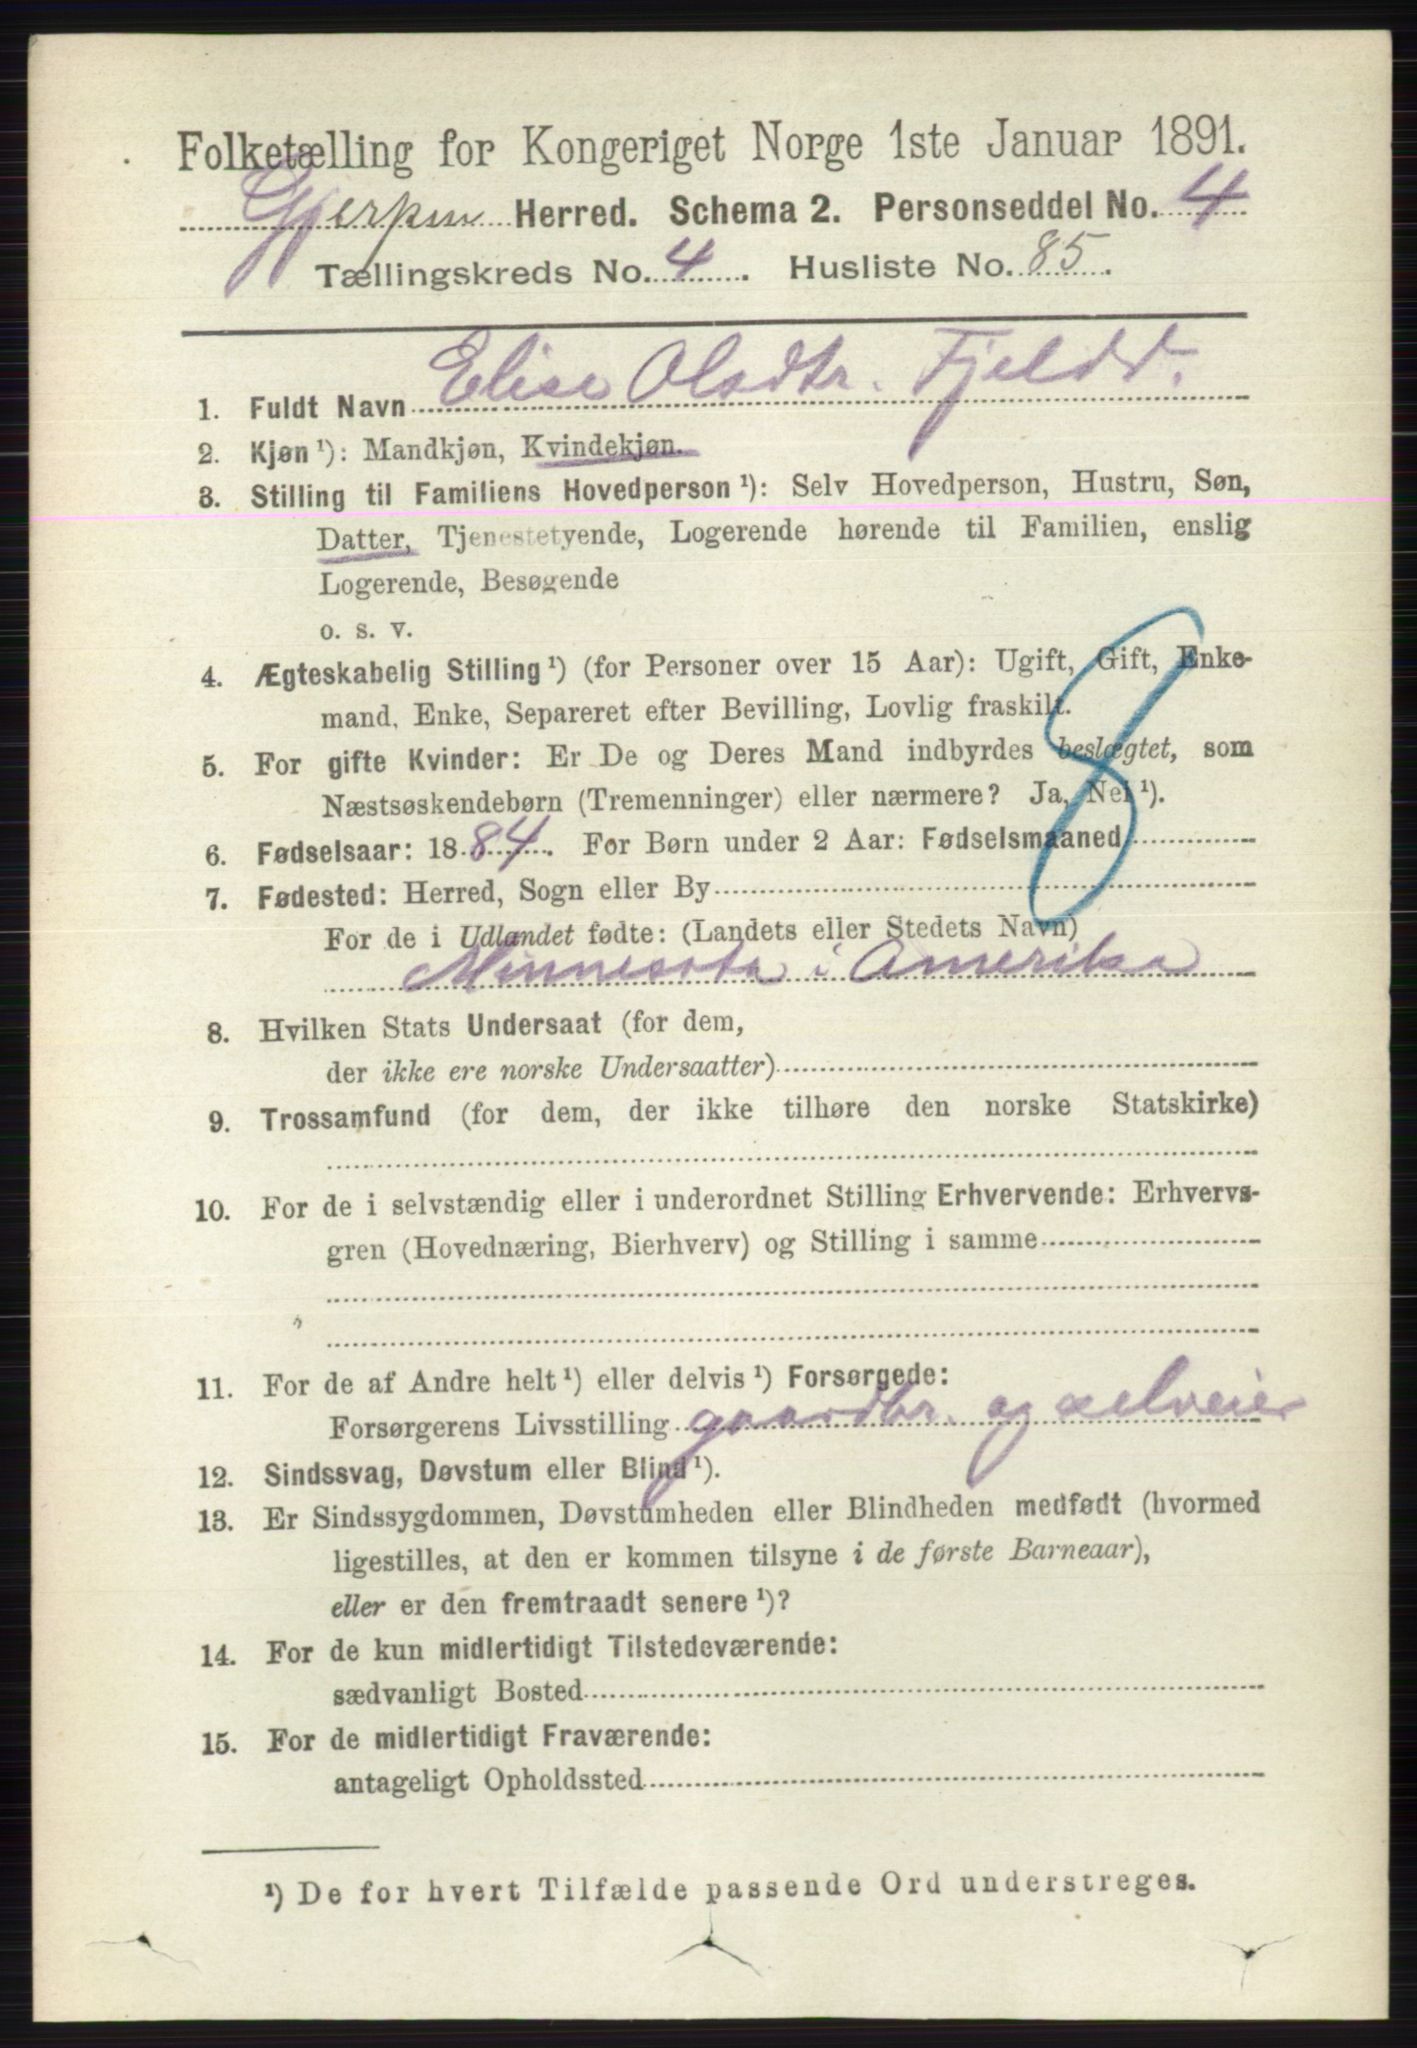 Folketælling for Kongeriget Norge 1ste Januar 1891.
Gjerpen Herred. Schema 2. Personseddel No. 4
Tællingskreds No. 4. Husliste No. 85.
1. Fuldt Navn Elise Olsdtr. Fjeld d.
2. Kjøn ¹): Mandkjøn, Kvindekjøn.
3. Stilling til Familiens Hovedperson ¹): Selv Hovedperson, Hustru, Søn,
Datter, Tjenestetyende, Logerende hørende til Familien, enslig
Logerende, Besøgende
o. s. v.
4. Ægteskabelig Stilling ¹) (for Personer over 15 Aar): Ugift, Gift, Enke-
mand, Enke, Separeret efter Bevilling, Lovlig fraskilt.
8
5. For gifte Kvinder: Er De og Deres Mand indbyrdes beslægtet, som
Næstsøskendebørn (Tremenninger) eller nærmere? Ja, Nei ¹).
6. Fødselsaar: 1884. For Børn under 2 Aar: Fødselsmaaned
7. Fødested: Herred, Sogn eller By
For de i Udlandet fødte: (Landets eller Stedets Navn)
Minnesota i Amerika
8. Hvilken Stats Undersaat (for dem,
der ikke ere norske Undersaatter)
9. Trossamfund (for dem, der ikke tilhøre den norske Statskirke)
10. For de i selvstændig eller i underordnet Stilling Erhvervende: Erhvervs-
gren (Hovednæring, Bierhverv) og Stilling i samme
11. For de af Andre helt ¹) eller delvis ¹) Forsørgede:
Forsørgerens Livsstilling gaardbr. og selveier
12. Sindssvag, Døvstum eller Blind ¹).
13. Er Sindssygdommen, Døvstumheden eller Blindheden medfødt (hvormed
ligestilles, at den er kommen tilsyne i de første Barneaar),
eller er den fremtraadt senere ¹)?
14. For de kun midlertidigt Tilstedeværende:
sædvanligt Bosted
15. For de midlertidigt Fraværende:
antageligt Opholdssted
¹) De for hvert Tilfælde passende Ord understreges.